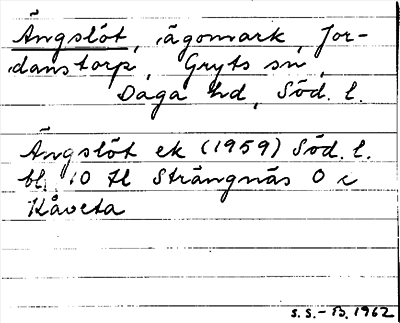 Ängslöt, ägomark, Jor-
danstorp, Gryts sn,
Daga hd, Söd. l.
Ängslöt ek (1959) Söd. l.
bl. 10 H Strängnäs O c
Kåveta
S.S.-B. 1962